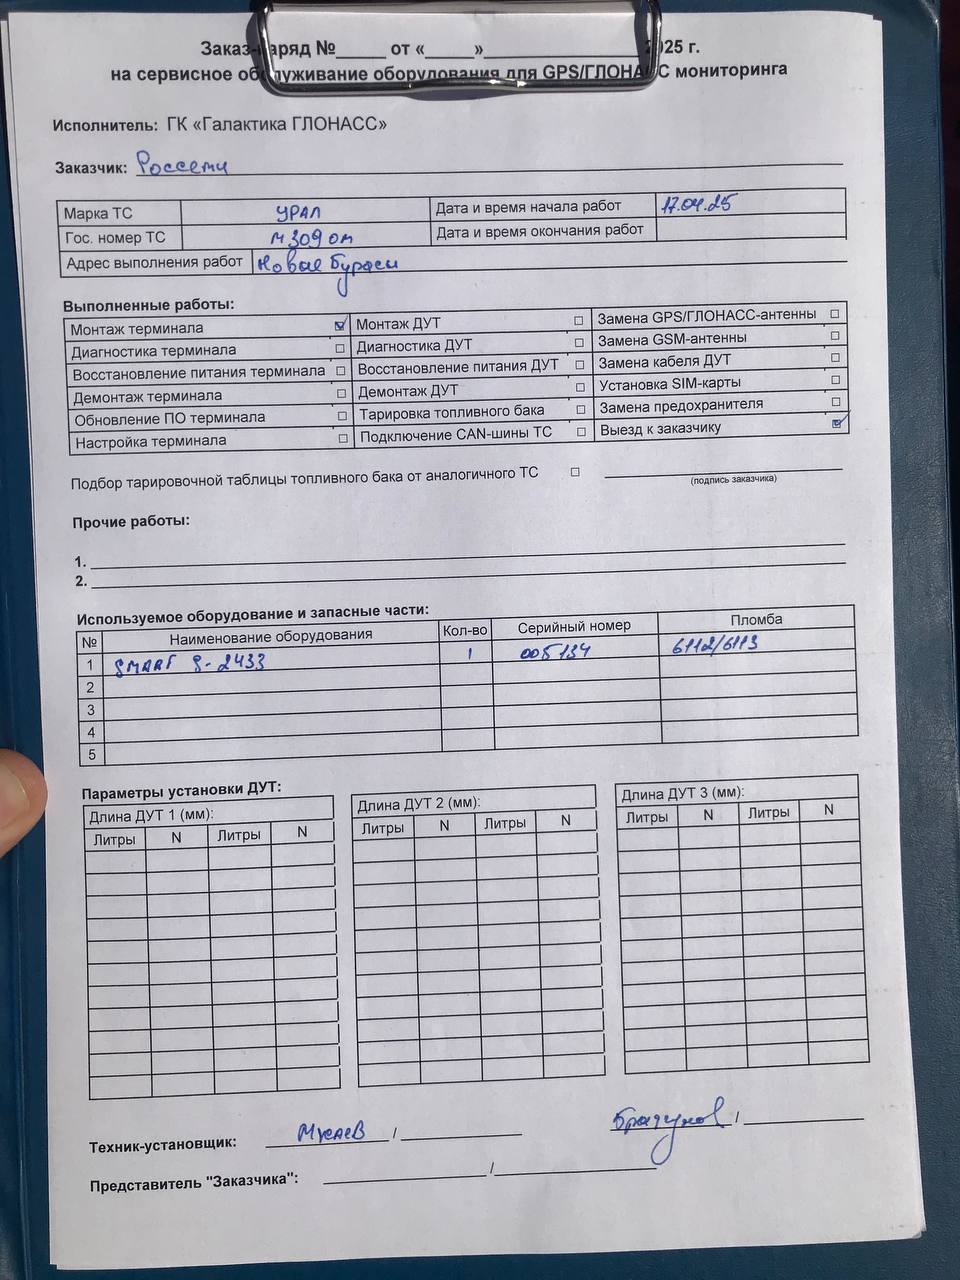 Заказ-наряд №_____ от «_____»________________ 2025 г.
на сервисное обслуживание оборудования для GPS/ГЛОНАСС мониторинга
Исполнитель: ГК «Галактика ГЛОНАСС»
Заказчик: Россети
Марка ТС УРАЛ Дата и время начала работ 17.04.25
Гос. номер ТС м309ом Дата и время окончания работ
Адрес выполнения работ Новые Бурасы
Выполненные работы:
Монтаж терминала ☑ Монтаж ДУТ ☐ Замена GPS/ГЛОНАСС-антенны ☐
Диагностика терминала ☐ Диагностика ДУТ ☐ Замена GSM-антенны ☐
Восстановление питания терминала ☐ Восстановление питания ДУТ ☐ Замена кабеля ДУТ ☐
Демонтаж терминала ☐ Демонтаж ДУТ ☐ Установка SIM-карты ☐
Обновление ПО терминала ☐ Тарировка топливного бака ☐ Замена предохранителя ☐
Настройка терминала ☐ Подключение CAN-шины ТС ☐ Выезд к заказчику ☑
Подбор тарировочной таблицы топливного бака от аналогичного ТС ☐
(подпись заказчика)
Прочие работы:
1.
2.
Используемое оборудование и запасные части:
№ Наименование оборудования Кол-во Серийный номер Пломба
1 SMART S-2433 1 005134 6112/6113
2
3
4
5
Параметры установки ДУТ:
Длина ДУТ 1 (мм): Длина ДУТ 2 (мм): Длина ДУТ 3 (мм):
Литры N Литры N Литры N Литры N Литры N Литры N
Техник-установщик: / /
Представитель "Заказчика": /